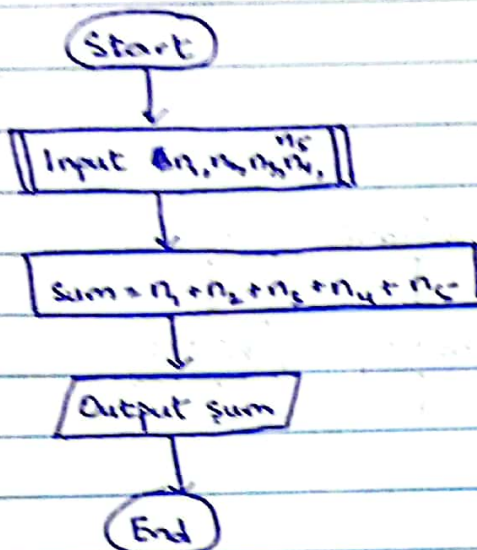 Start
Input n₁, n₂, n₃, n₄, n₅
Sum = n₁ + n₂ + n₃ + n₄ + n₅
Output sum
End